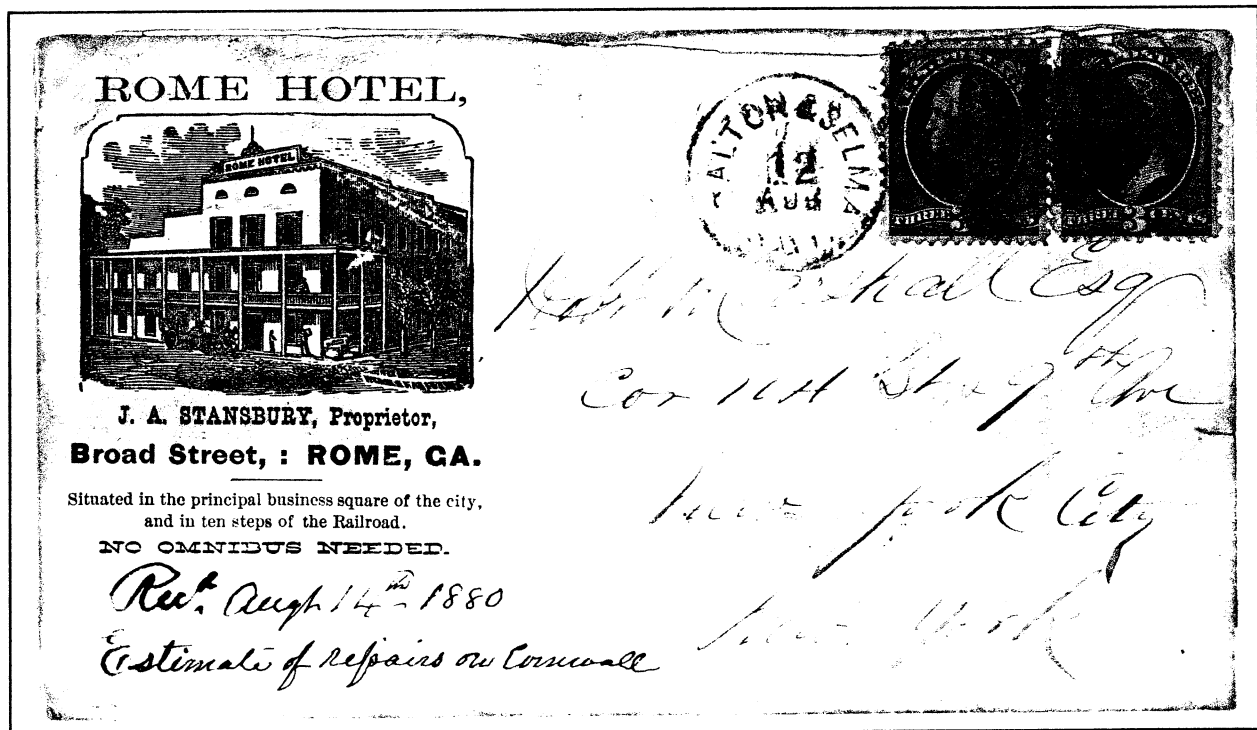 ROME HOTEL,
ROME HOTEL
J. A. STANSBURY, Proprietor,
Broad Street, : ROME, GA.
Situated in the principal business square of the city,
and in ten steps of the Railroad.
NO OMNIBUS NEEDED.
Augt 14th 1880
Estimate of repairs on Cornwall
ALTON & SELMA
12
AUG
3 CENTS
Marshall Esq
Cor 11th St & 9th Ave
New York City
New York